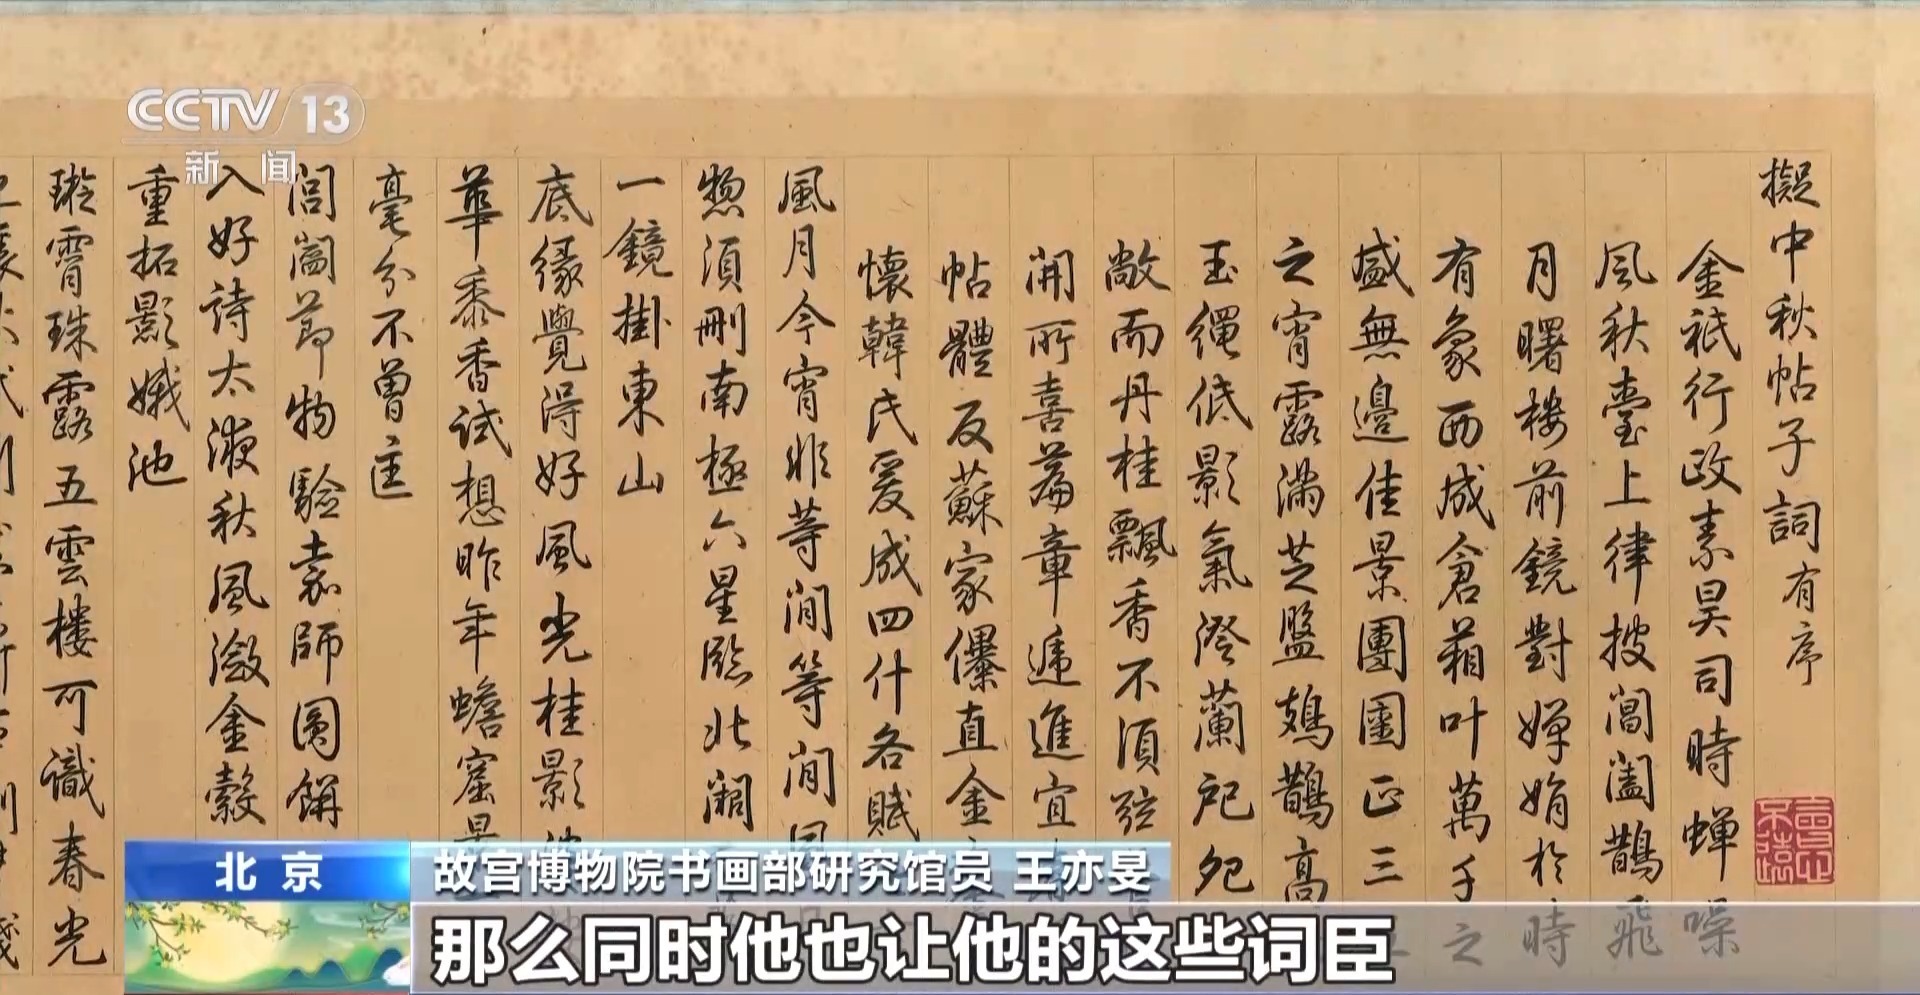 CCTV 13
新闻
擬中秋帖子詞有序
金祇行政素昊司時蝉噪
風秋臺上律披閶闔鵲飛
月曙樓前鏡對嬋娟於時
有象西成倉葙叶萬千之
盛無邊佳景團圞正三
之宵露滿芝盤鳷鵲高
玉繩低影氣澄蘭戺夗
敞而丹桂飄香不須弦
開所喜篇章遞進宜
帖體反蘇家儤直金
懷韓氏爰成四什各賦
風月今宵非等閒等閒
惣須刪南極六星臨北闕
一鏡掛東山
底緣覺得好風光桂影
華黍香試想昨年蟾窟
毫分不曾匡
閶闔節物驗京師圓餅
入好詩太液秋風瀲金縠
重拓影娥池
璇霄珠露五雲樓可識春光
北京
故宫博物院书画部研究馆员 王亦旻
那么同时他也让他的这些词臣